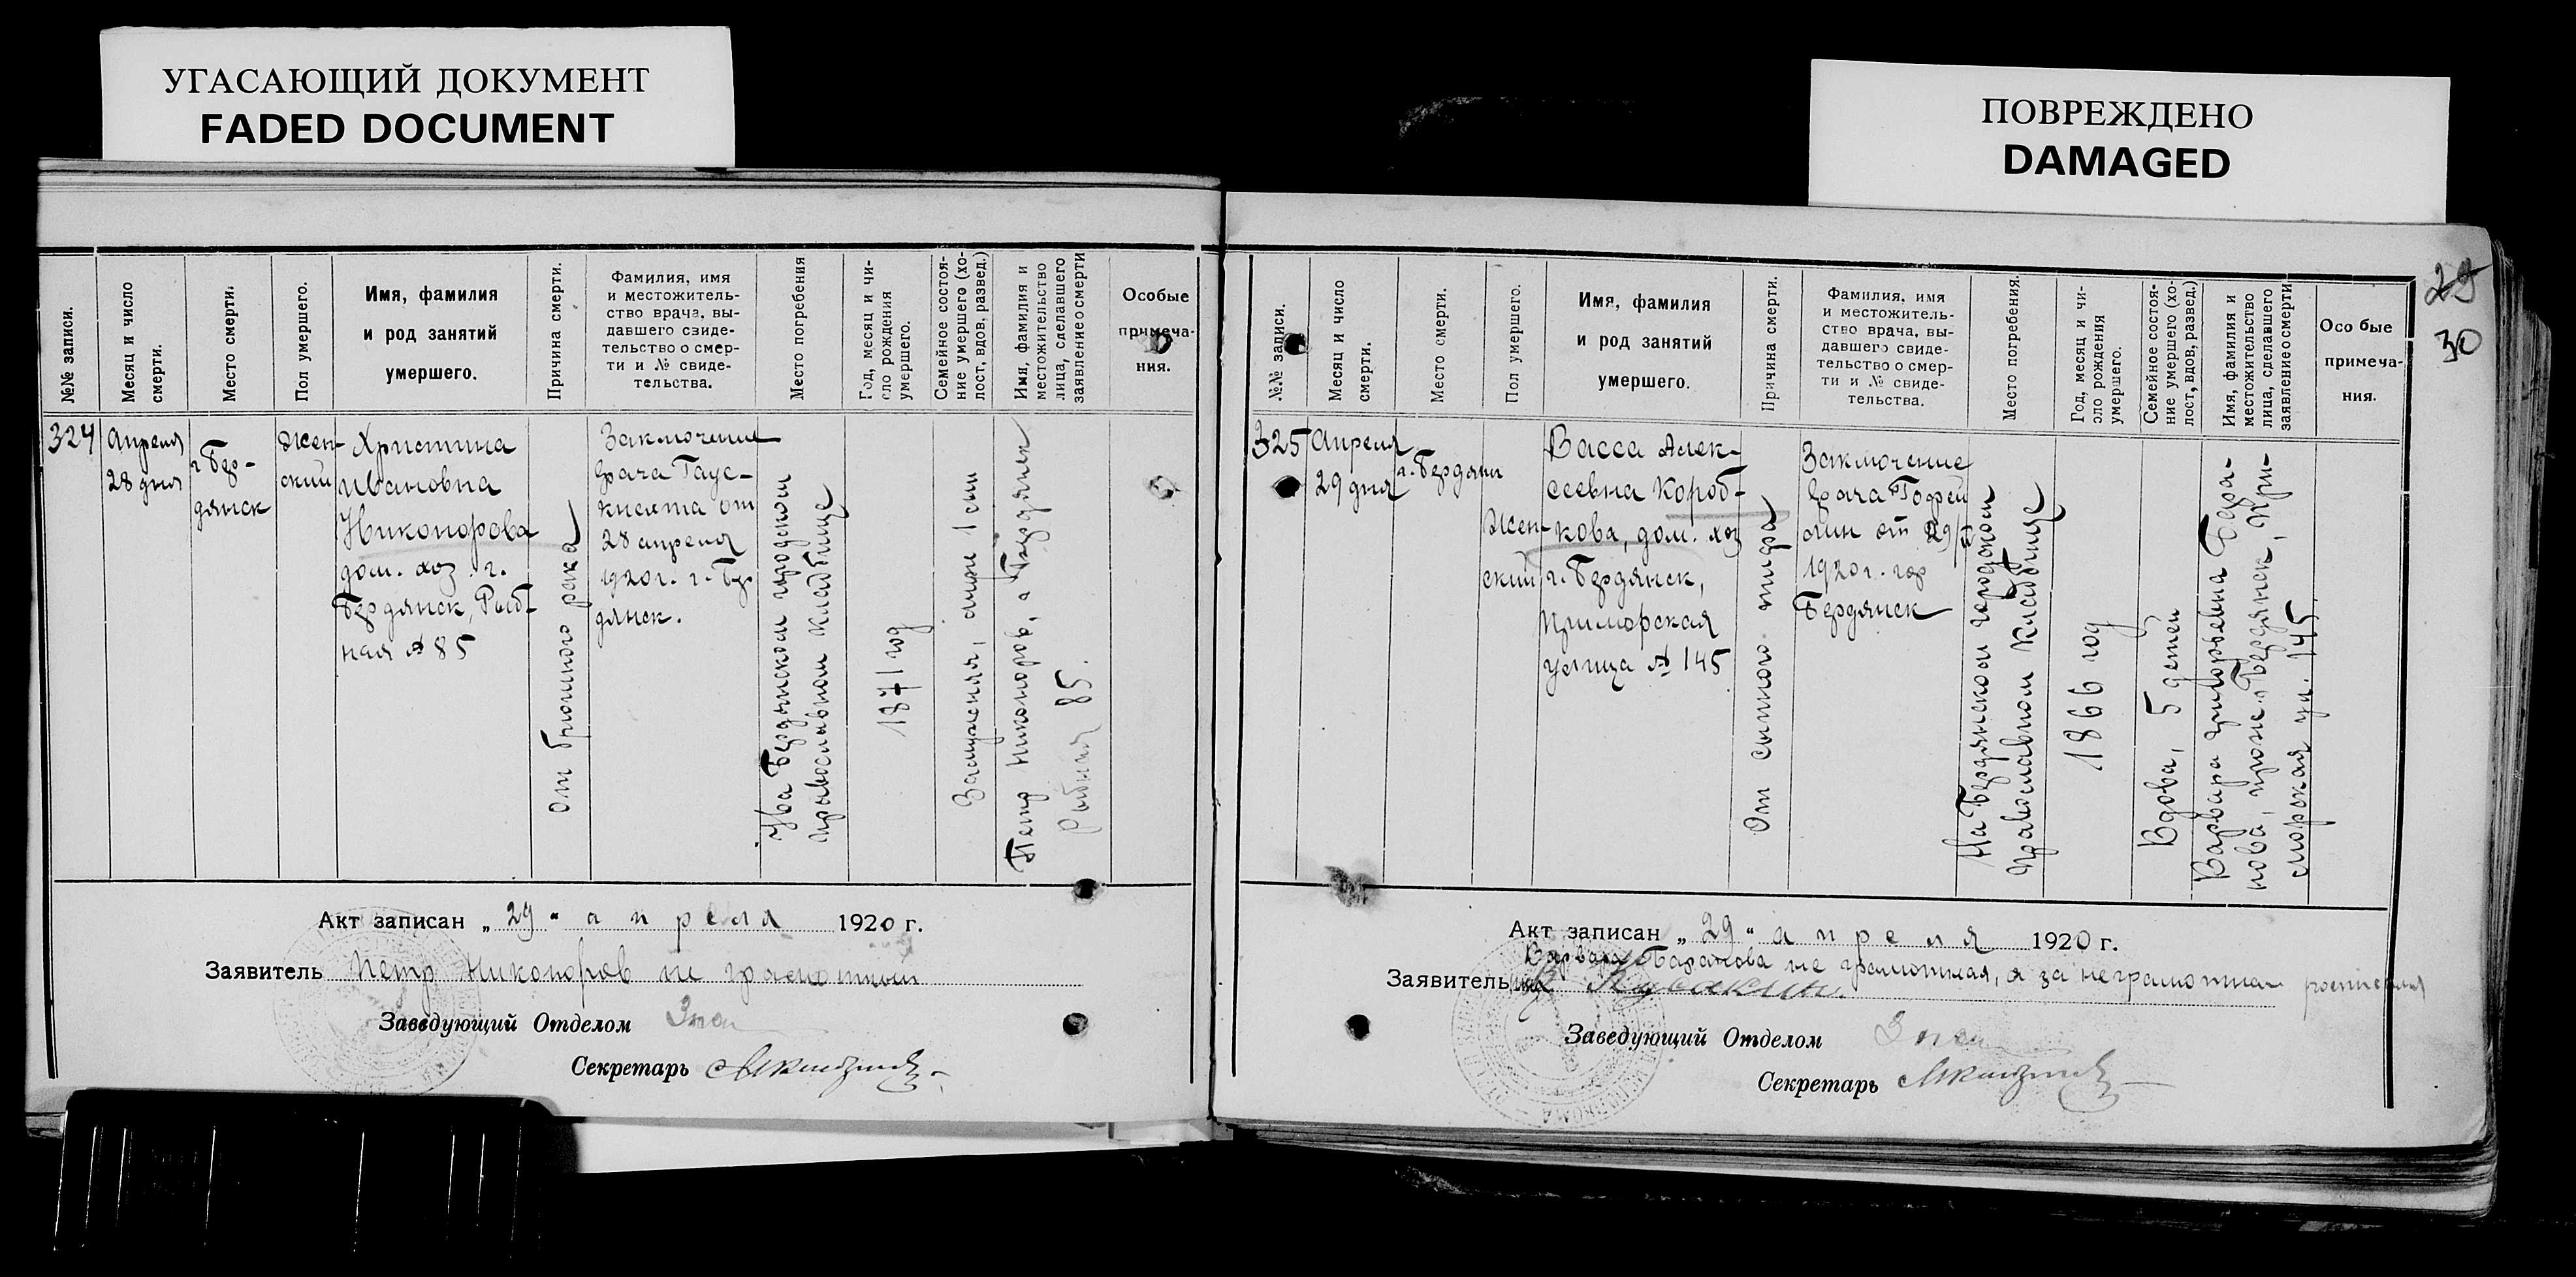 УГАСАЮЩИЙ ДОКУМЕНТ
FADED DOCUMENT
ПОВРЕЖДЕНО
DAMAGED
№№ записи.
Месяц и число
смерти.
Место смерти.
Пол умершего.
Имя, фамилия
и род занятий
умершего.
Причина смерти.
Фамилия, имя
и местожитель-
ство врача, вы-
давшего свиде-
тельство о смер-
ти и № свиде-
тельства.
Место погребения
Год, месяц и чи-
сло рождения
умершего.
Семейное состоя-
ние умершего (хо-
лост, вдов, развед.)
Имя, фамилия и
местожительство
лица, сделавшего
заявление о смерти
Особые
примеча-
ния.
324
Апреля
28 дня
г. Бер-
дянск
Жен-
ский
Христина
Ивановна
Никонорова
дом. хоз. г.
Бердянск, Рыб-
ная № 85
От брюшного рака
Заключение
врача Гаус-
от
28 апреля
1920 г. г. Бер
дянск.
На Бердянском городском
православном кладбище
1871 год
Замужняя, один сын
Петр Никоноров, г. Бердянск
Рыбная 85.
Акт записан „29“ апреля 1920 г.
Заявитель Петр Никоноров не грамотный
Заведующий Отделом
Секретарь
29
30
№№ записи.
Месяц и число
смерти.
Место смерти.
Пол умершего.
Имя, фамилия
и род занятий
умершего.
Причина смерти.
Фамилия, имя
и местожитель-
ство врача, вы-
давшего свиде-
тельство о смер-
ти и № свиде-
тельства.
Место погребения.
Год, месяц и чи-
сло рождения
умершего.
Семейное состоя-
ние умершего (хо-
лост, вдов, развед.)
Имя, фамилия и
местожительство
лица, сделавшего
заявление о смерти.
Особые
примеча-
ния.
325
Апреля
29 дня
г. Бердянск
Жен-
ский
Васса Алек-
сеевна Короб-
кова, дом. хоз
г. Бердянск,
Приморская
улица № 145
От сыпного тифа
Заключение
врача
от 29/IV
1920 г. гор
Бердянск
На Бердянском городском
православном кладбище
1866 год
Вдова, 5 детей
Варвара Григорьевна Бара-
нова, прож. г. Бердянск, При-
морская ул. 145.
Акт записан „29“ апреля 1920 г.
Варвара Баранова не грамотная, а за неграмотная
Заявитель
Заведующий Отделом
Секретарь